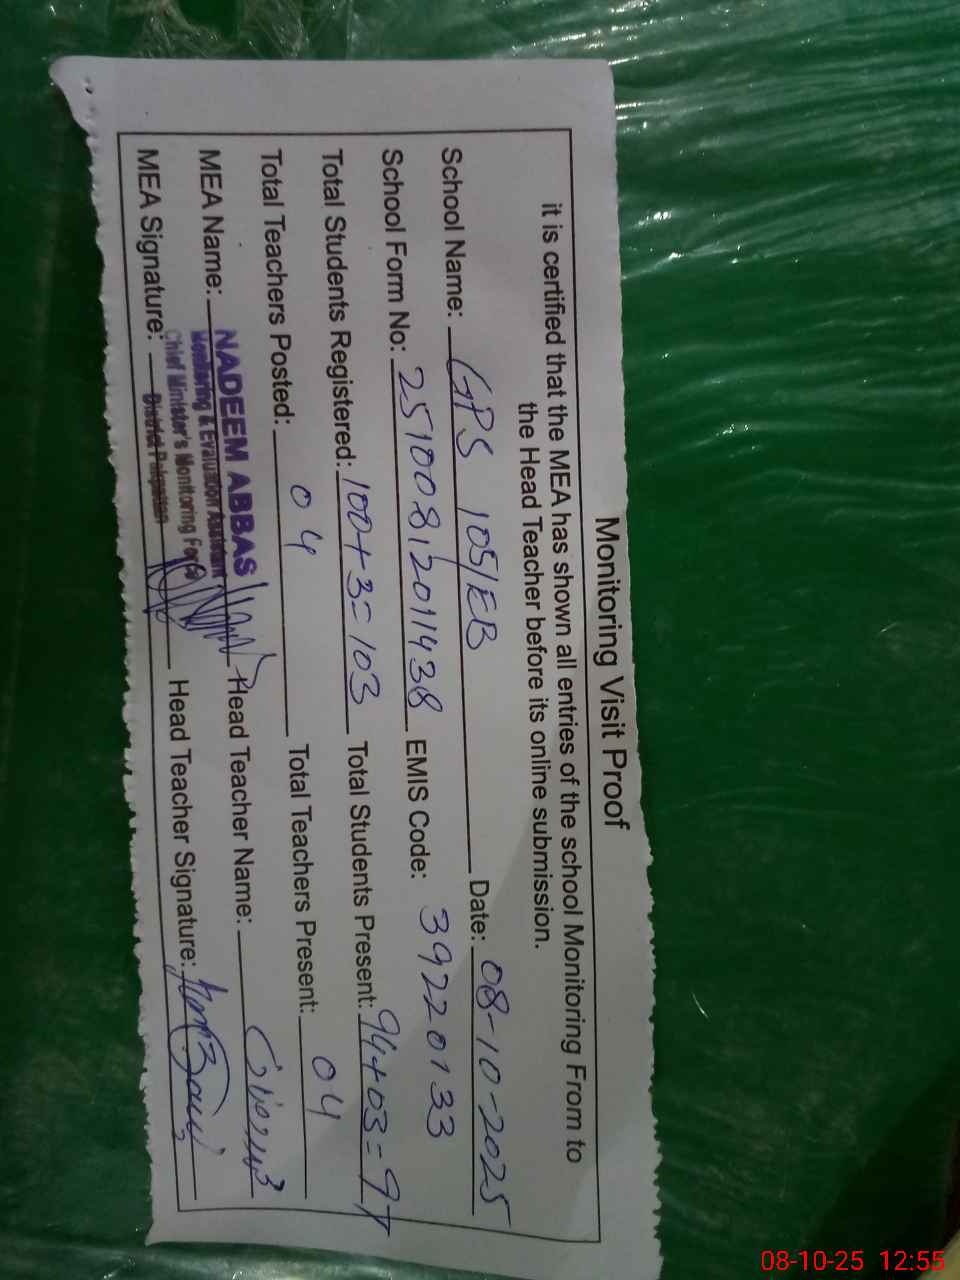 Monitoring Visit Proof
it is certified that the MEA has shown all entries of the school Monitoring From to
the Head Teacher before its online submission.
School Name: GPS 105/EB Date: 08-10-2025
School Form No: 251008,2011438 EMIS Code: 39220133
Total Students Registered: 100+3=103 Total Students Present: 94+03=97
Total Teachers Posted: 04 Total Teachers Present: 04
MEA Name: NADEEM ABBAS Head Teacher Name:
Monitoring & Evaluation Assistant
Chief Minister's Monitoring Force
MEA Signature: District Pakpattan Head Teacher Signature:
08-10-25 12:55